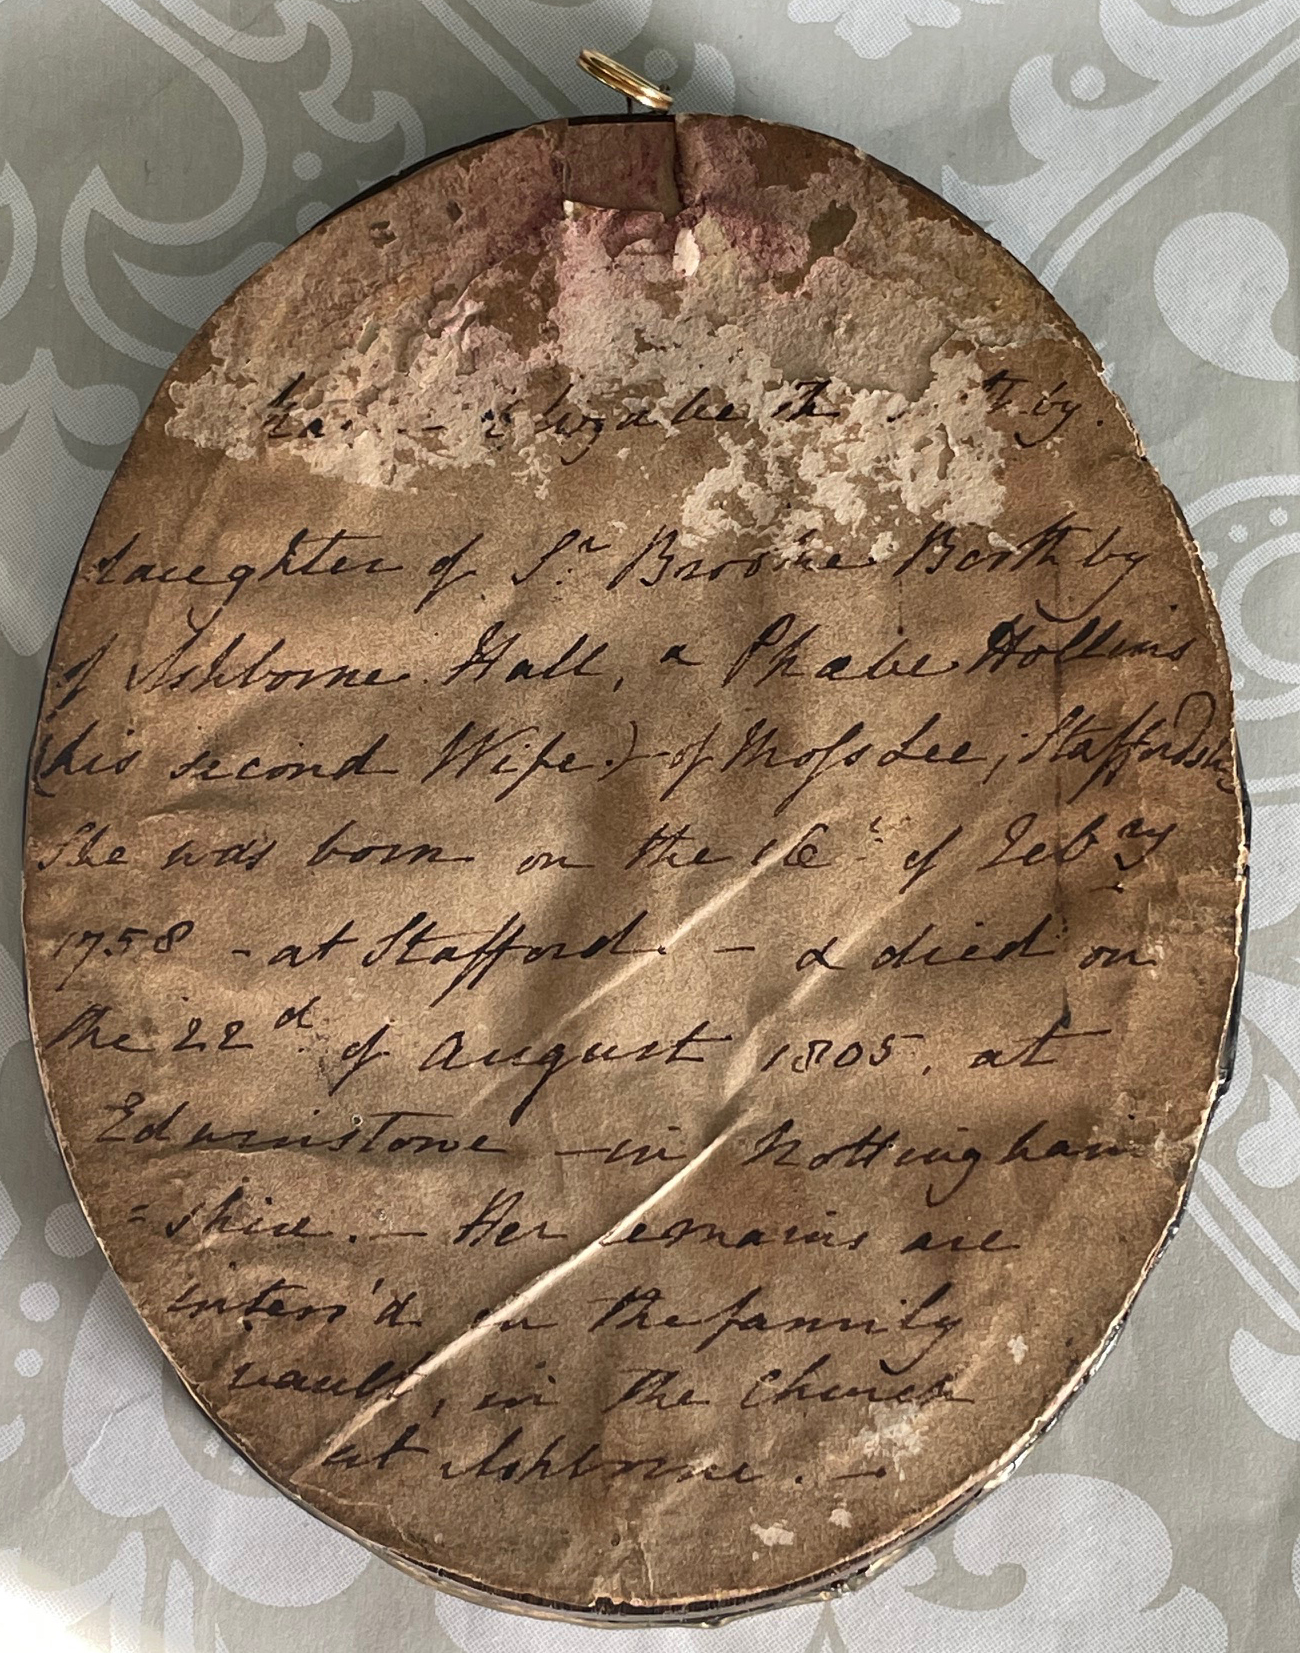 Elizabeth
daughter of Sr. Brooke Boothby
of Ashborne Hall, & Phœbe Hollins
(his second Wife) of Moss Lee, Staffordshe
She was born on the 16th of Febry
1758 - at Stafford - & died on
the 22d of August 1805, at
Edwinstowe - in Nottingham
=shire. - Her remains are
interr'd in the family
vault, in the Church
at Ashborne. -